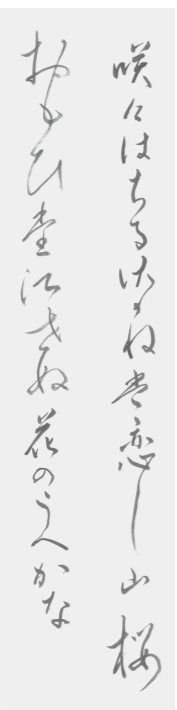 咲けはちるさかねは恋し山桜
おもひたえせぬ花のうへかな